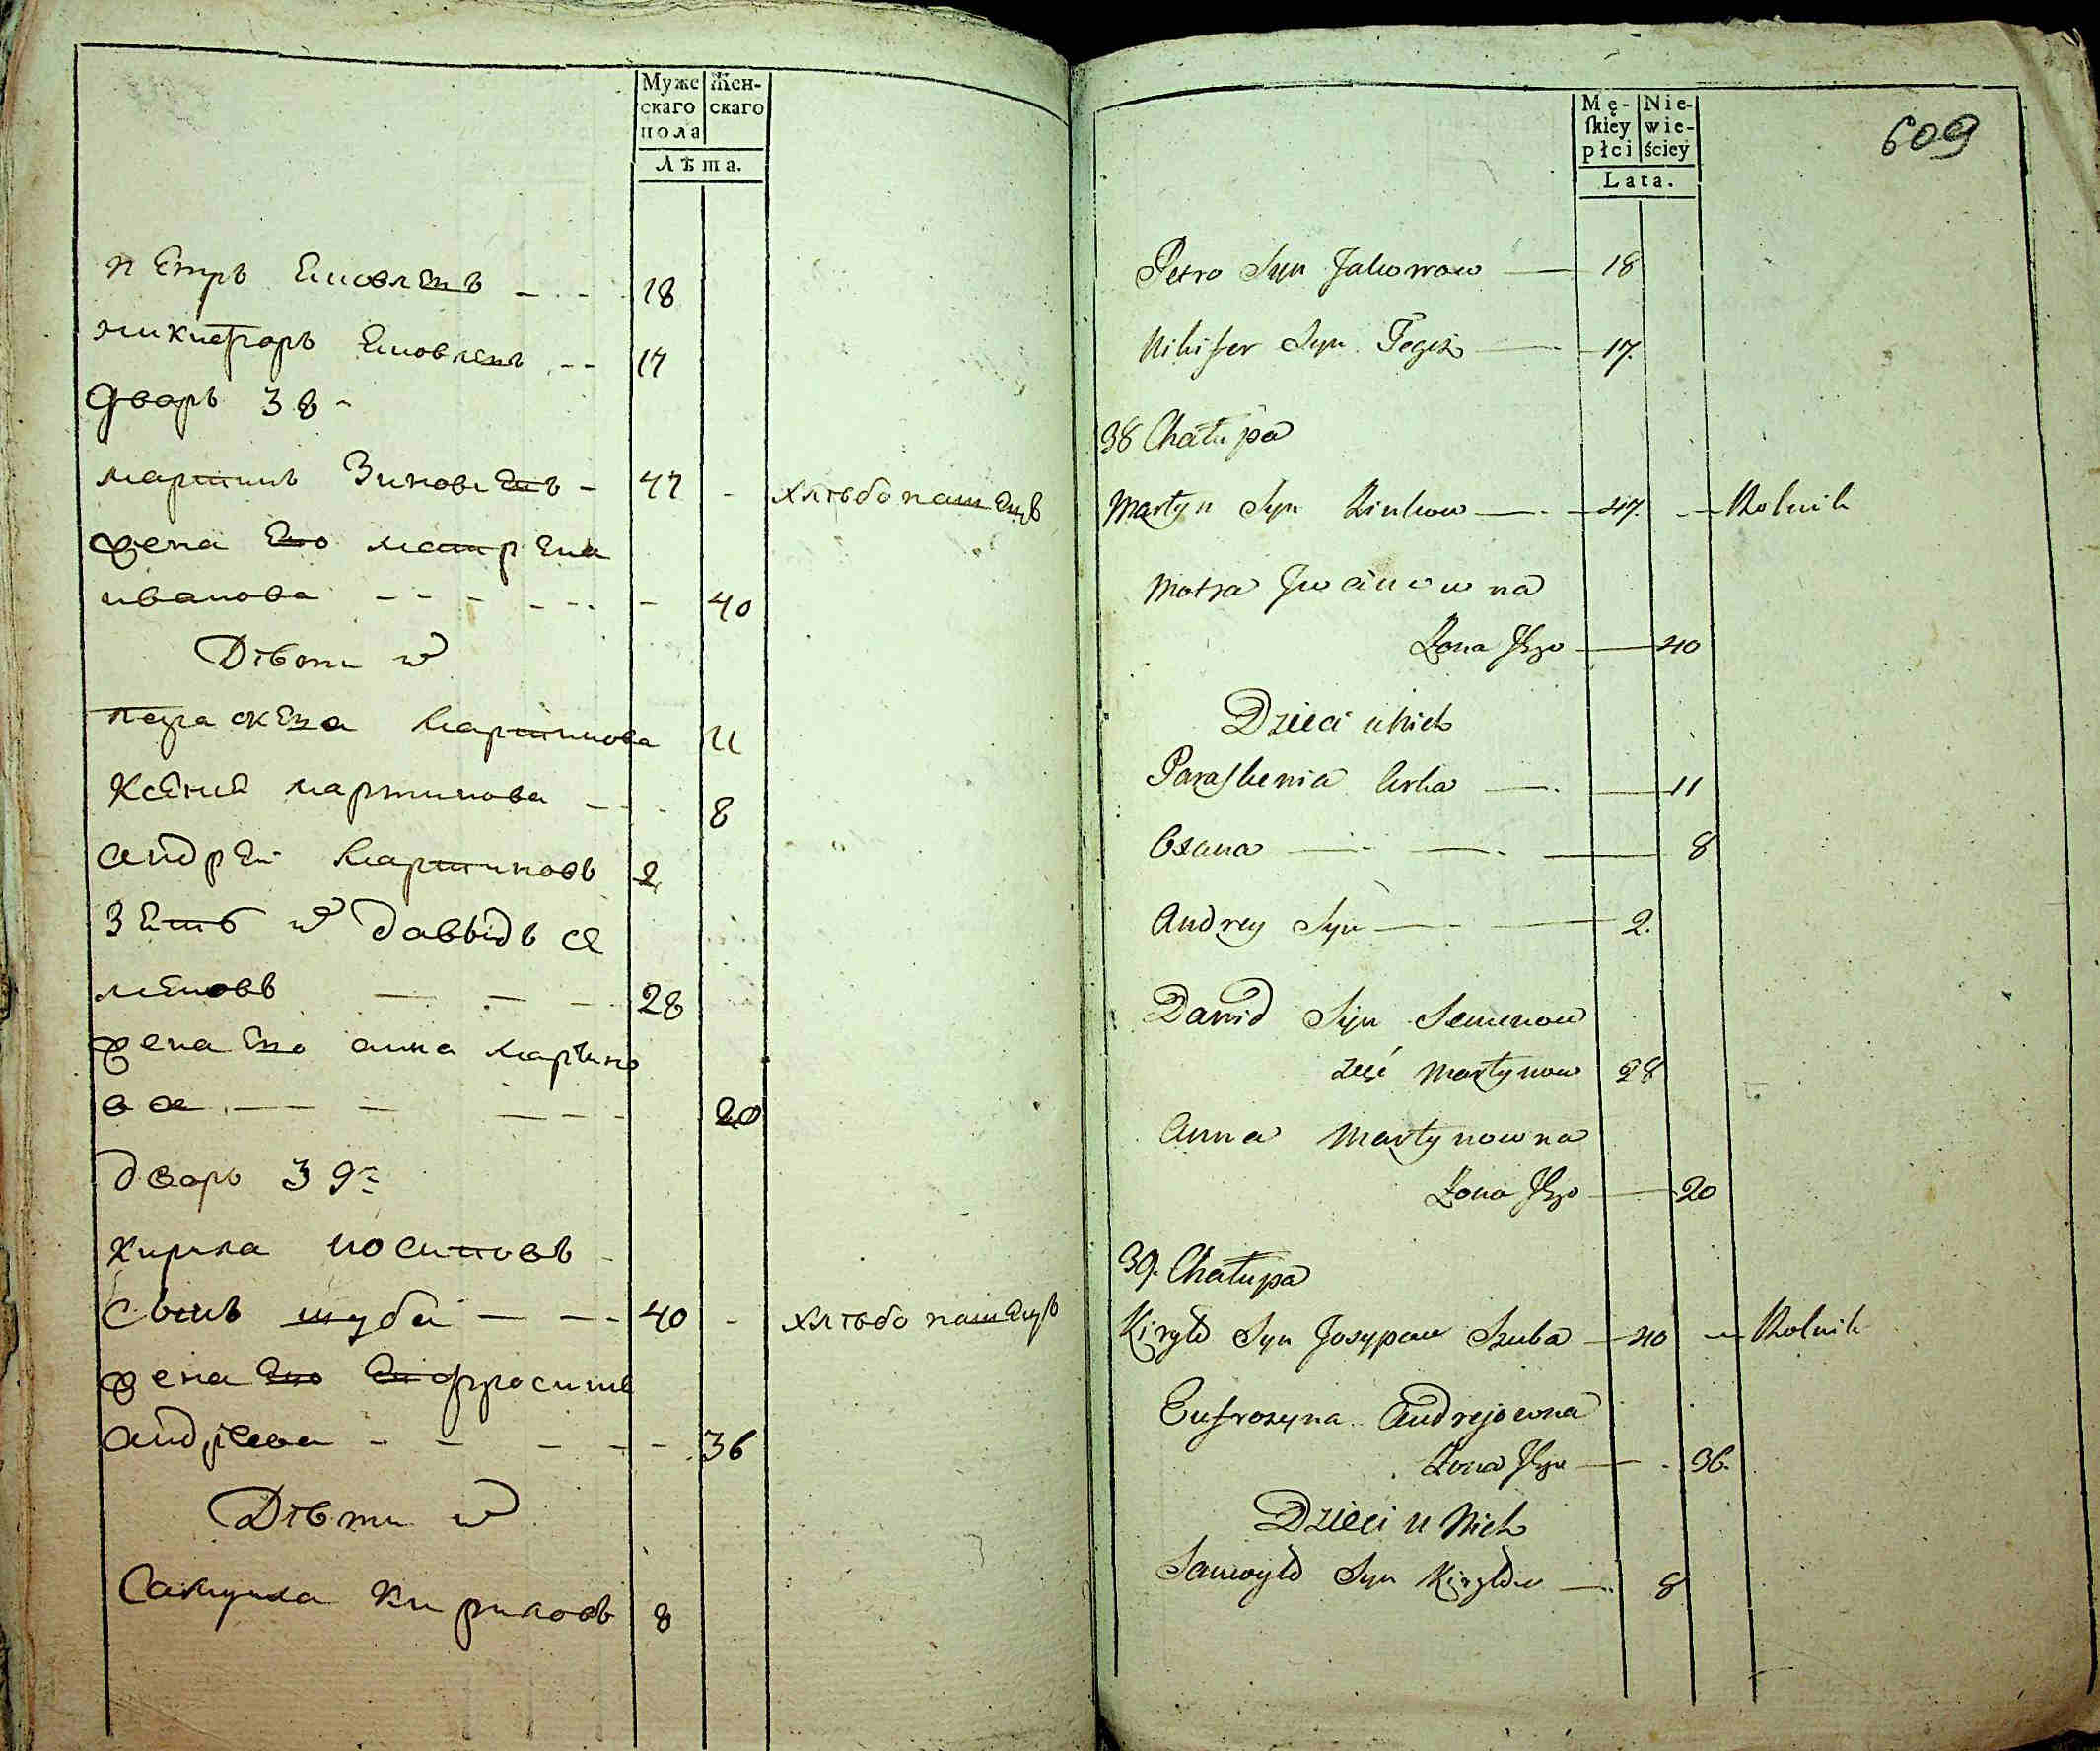 Муже
скаго
пола
Жен-
скаго
Лѣта.
петръ Емовлевъ 18
никифоръ Емовлевъ 17
дворъ 38
мартинъ Зиновьевъ 47 хлѣбопашецъ
жена Его матрена
иванова 40
Дѣти и
параскева мартинова 11
мартинова 8
андрей мартиновъ 2
Зеть и давыдъ се
меновъ 28
жена Его анна мартино
ва 20
дворъ 39
кирила иосиповъ
сынъ шуба 40 хлѣбопашецъ
жена Его Ефросинь
андреева 36
Дѣти и
Самуила кириловъ 8
Mę-
skiey
płci
Nie-
wie-
ściey
Lata.
609
Petro Syn Jakowow 18
Nikifer Syn Tegoż 17.
38 Chałupa
Martyn Syn Zinkow 47. Rolnik
Motra Jwanowna
Żona Jego 40
Dzieci u Nich
Paraskewia Corka 11
Oxana 8
Andrey Syn 2.
Dawid Syn Semenow
Zięć Martynow 28
Anna Martynowna
Żona Jego 20
39. Chałupa
Kiryło Syn Josypow Szuba 40 Rolnik
Eufrozyna Andrejowna
Żona Jego 36.
Dzieci u Nich
Samoyło Syn Kiryłow 8